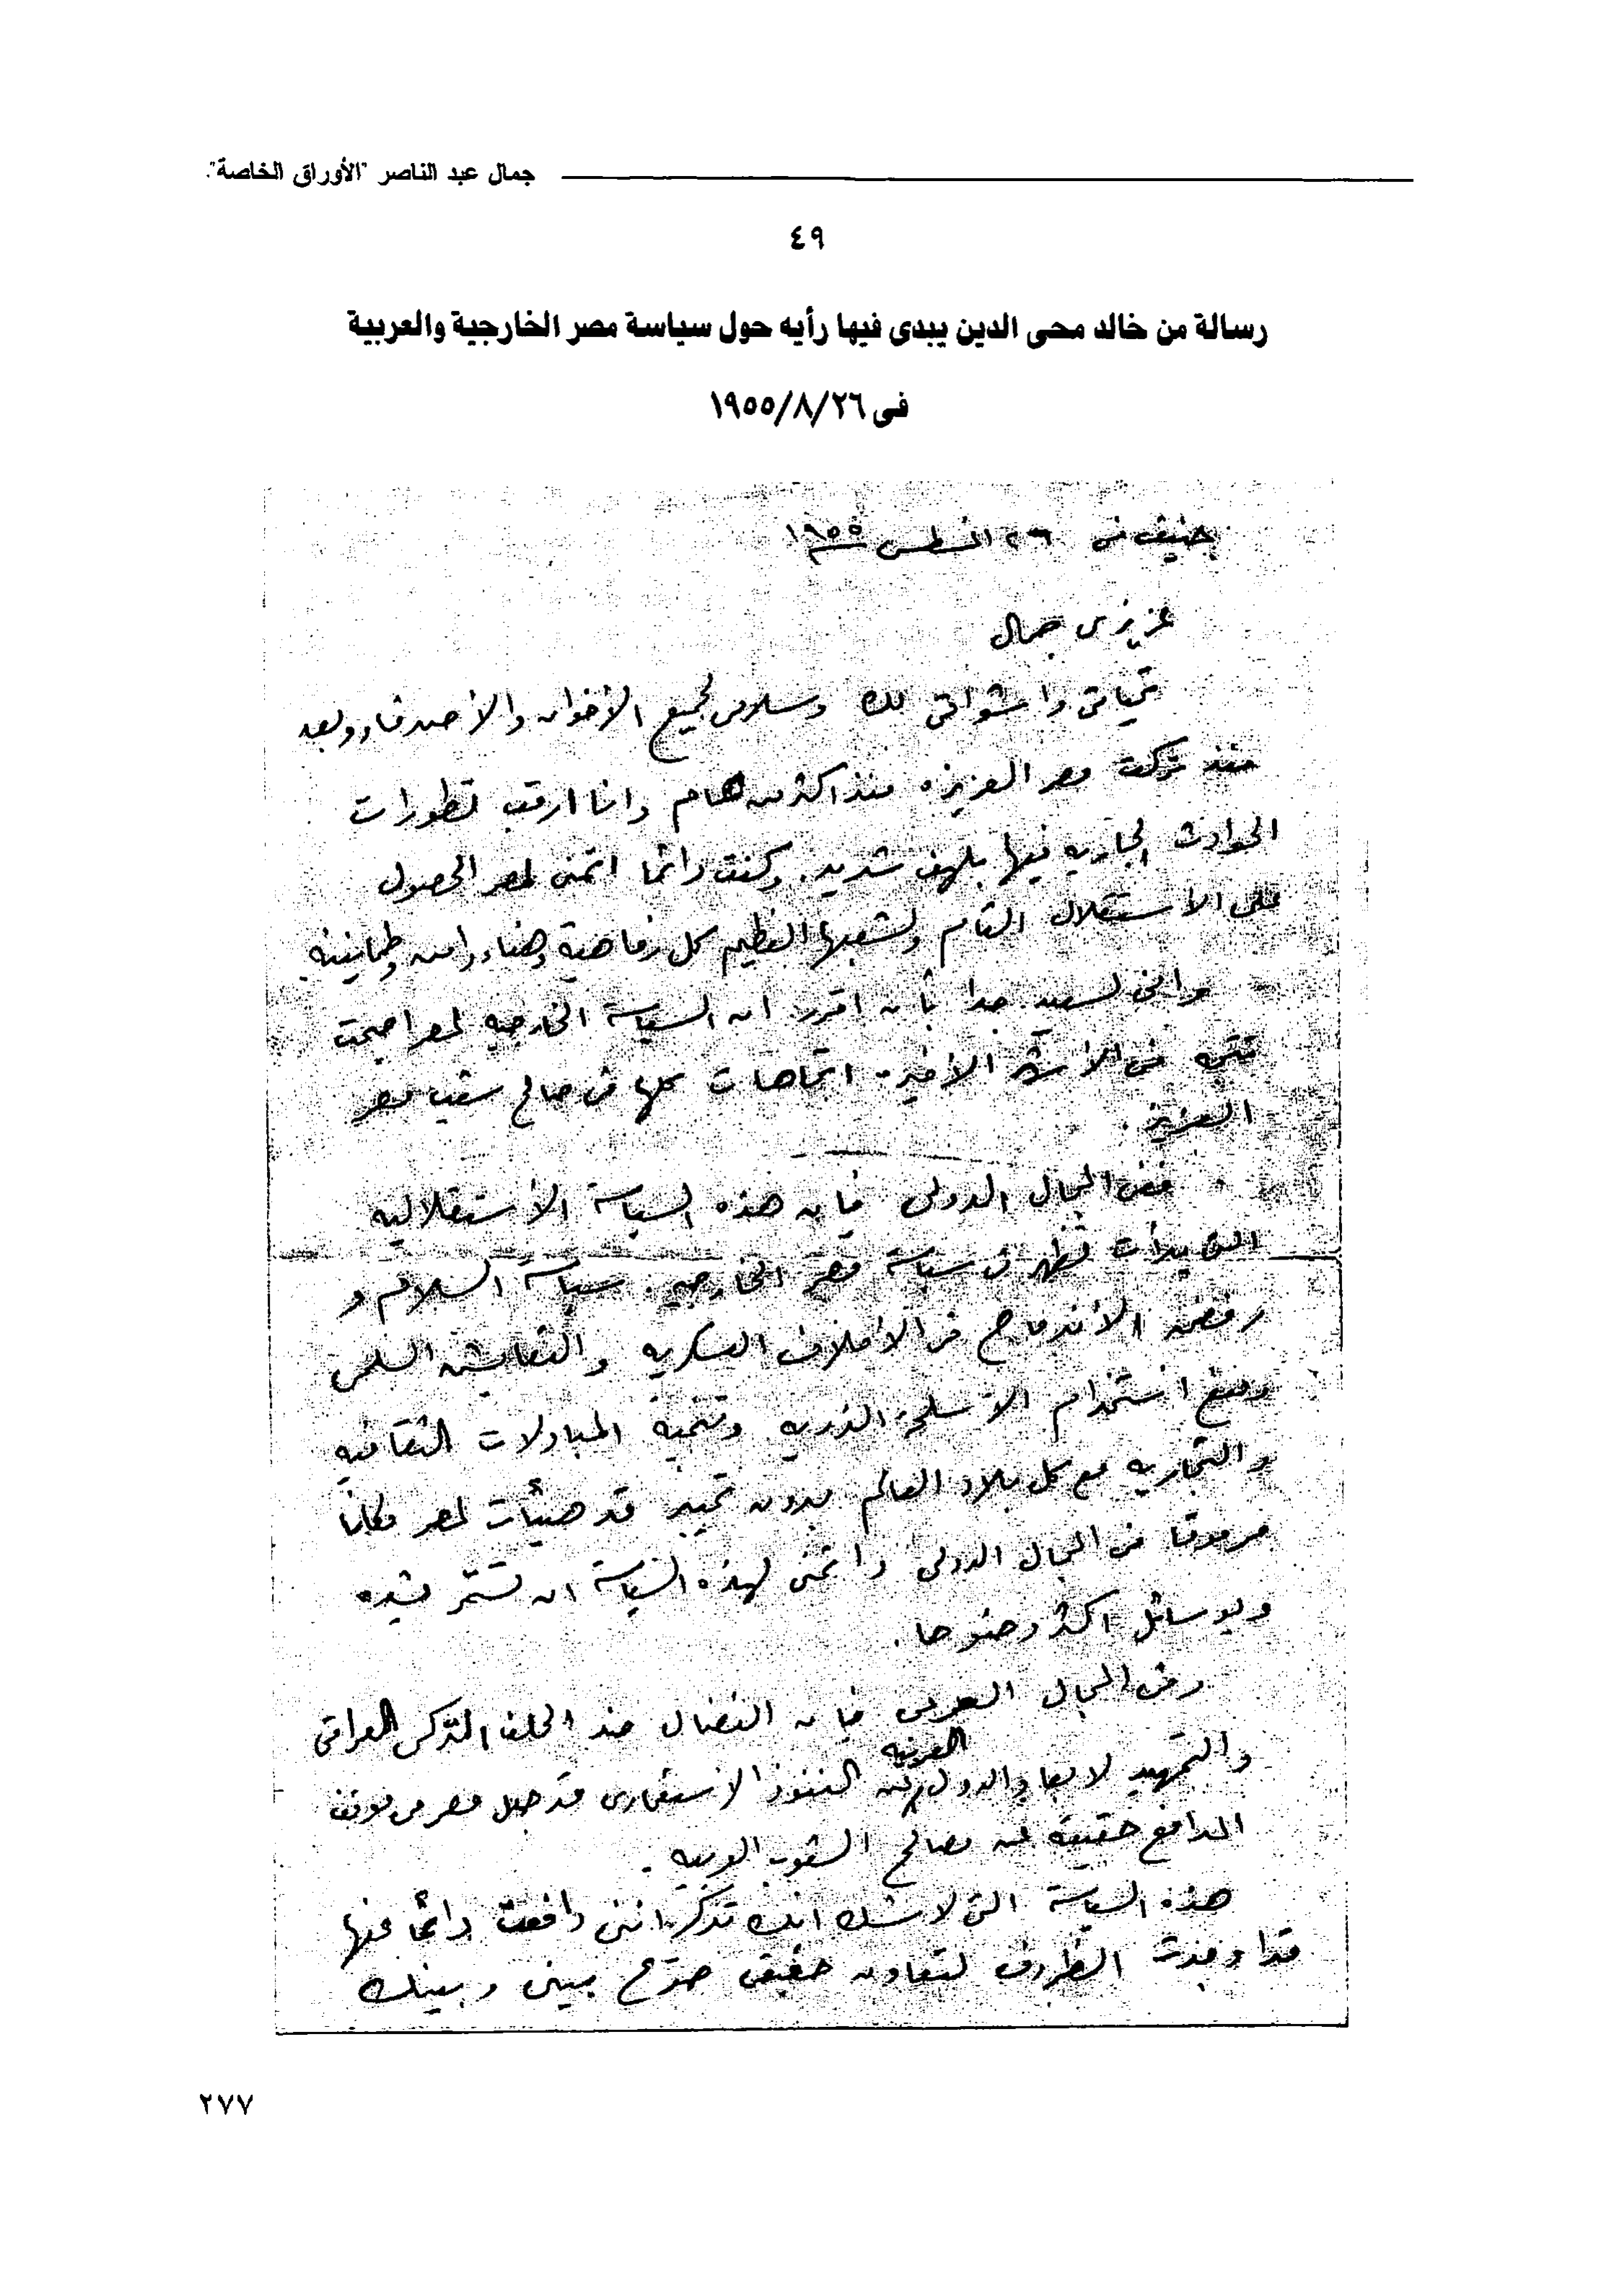 جمال عبد الناصر "الأوراق الخاصة".
٤٩
رسالة من خالد محى الدين يبدى فيها رأيه حول سياسة مصر الخارجية والعربية
فى ١٩٥٥/٨/٢٦
جنيف فى ٢٦ اغسطس ١٩٥٥
عزيزى جمال
تحياتى واشواقى لك وسلامى لجميع الأخوان والأصدقاء وبعد
منذ تركت مصر العزيزه منذ اكثر من عام وانا ارقب تطورات
الحوادث الجاريه فيها بلهف شديد. وكنت دائما اتمنى لمصر الحصول
على الأستقلال التام ولشعبها العظيم كل رفاهية وهناء وامن وطمانينه.
وانى لسعيد جدا بأن اقرر ان السياسة الخارجيه لمصر اصبحت
تتجه فى الأشهر الأخيره اتجاهات كلها فى صالح شعب مصر
العزيز.
ففى المجال الدولى فان هذه السياسة الأستقلاليه
التى بدأت تظهر فى سياسة مصر الخارجيه. سياسة السلام و
رفض الأندماج فى الأحلاف العسكريه والتعايش السلمى
ومنع استخدام الأسلحة الذريه وتنمية المبادلات الثقافيه
والتجاريه مع كل بلاد العالم بدون تحيز قد هيأت لمصر مكانا
مرموقا فى المجال الدولى واتمنى لهذه السياسة ان تستمر بشده
وبوسائل اكثر وضوحا.
وفى المجال العربى فان النضال ضد الحلف التركى العراقى
والتمهيد لابعاد الدول العربيه عن النفوذ الأستعمارى قد جعل مصر فى موقف
المدافع حقيقة عن مصالح الشعوب العربيه.
هذه السياسة التى لا شك انك تذكر اننى دافعت دائما عنها
قد اوجدت الظروف لتعاون حقيقى صريح بينى وبينك
٢٧٧